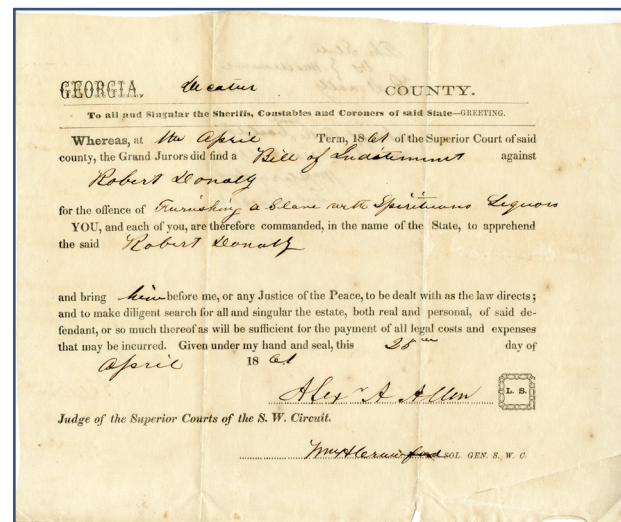 GEORGIA, Decatur COUNTY.
To all and Singular the Sheriffs, Constables and Coroners of said State—GREETING.
Whereas, at the April Term, 1861 of the Superior Court of said
county, the Grand Jurors did find a Bill of Indictment against
Robert Donaly
for the offence of Furnishing a Slave with Spirituous Liquors
YOU, and each of you, are therefore commanded, in the name of the State, to apprehend
the said Robert Donaly
and bring him before me, or any Justice of the Peace, to be dealt with as the law directs;
and to make diligent search for all and singular the estate, both real and personal, of said de-
fendant, or so much thereof as will be sufficient for the payment of all legal costs and expenses
that may be incurred. Given under my hand and seal, this 25th day of
April 1861
Alex A Allen L. S.
Judge of the Superior Courts of the S. W. Circuit.
SOL. GEN. S. W. C.